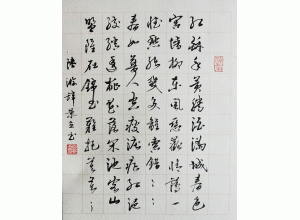 紅酥手黃縢酒滿城春色
宮墻柳東風惡歡情薄一
懷愁緒幾年離索錯〻〻
春如舊人空瘦淚痕紅浥
鮫綃透桃花落閑池閣山
盟雖在錦書難托莫〻〻
陸游 書